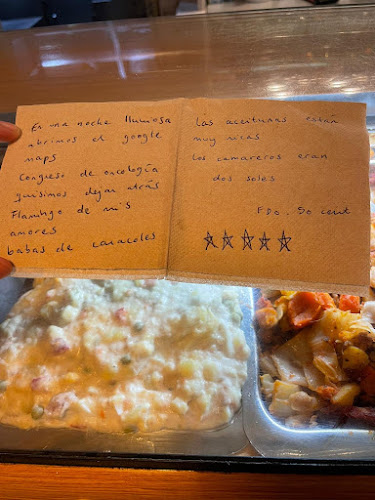 En una noche lluviosa
abrimos el google
maps
Congreso de oncología
quisimos dejar atrás
Flamingo de mis
amores
babas de caracoles
Las aceitunas están
muy ricas
Los camareros eran
dos soles
FDO. 50 cent